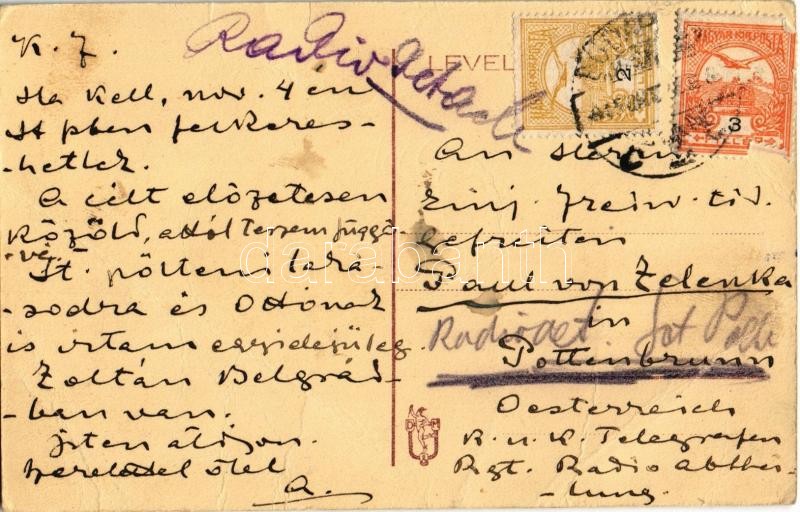 K. Z.
Ha kell, nov. 4 én
St pben felkeres-
-hetlek.
A célt előzetesen
közöld, attól teszem függő-
-vé.
St. pölteni laka-
-sodra és Ottonak
is irtam egyidejüleg.
Zoltán Belgrád-
-ban van.
Isten áldjon.
szeretettel ölel
A.
Radio
LEVEL
MAGYAR KIR. POSTA
3
An Herrn
Einj. Freiw. tit.
Gefreiten
Paul von Zelenka
in
Radiodet. St Pölt
Pottenbrunn
Oesterreich
K. u. K. Telegrafen
Rgt. Radio Abthei-
-lung.
darabanth